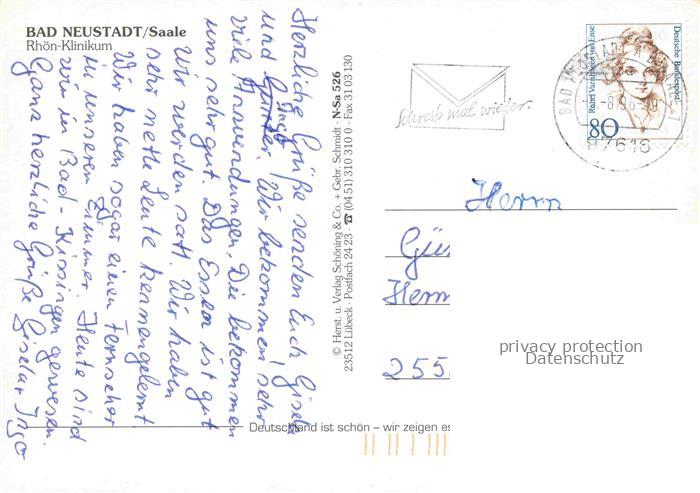 BAD NEUSTADT/Saale
Rhön-Klinikum
Herzliche Grüße senden Euch Gisela
und Ingo. Wir bekommen sehr
viele Anwendungen. Die bekommen
uns sehr gut. Das Essen ist gut
wir werden satt. Wir haben
sehr nette Leute kennengelernt.
Wir haben sogar einen Fernseher
in unserem Zimmer. Heute sind
wir in Bad-Kissingen gewesen.
Ganz herzliche Grüße Gisela + Ingo
© Herst. u. Verlag Schöning & Co. + Gebr. Schmidt · N-Sa 526
23512 Lübeck · Postfach 24 23 ☎ (04 51) 310 310 0 · Fax 31 03 130
Schreib mal wieder.
BAD NEUSTADT A D SAALE
97616
Deutsche Bundespost
Rahel Varnhagen von Ense
80
Herrn
Gü
Herm
255
privacy protection
Datenschutz
Deutschland ist schön – wir zeigen es